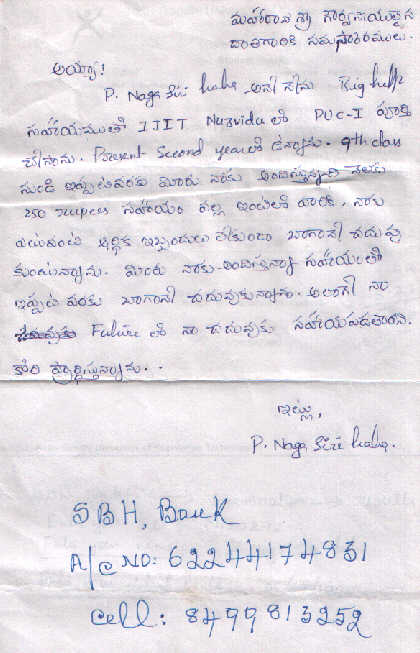 మహారాజ శ్రీ గౌరవనీయులైన
దాతగారికి నమస్కారములు.
అయ్యా!
P. Naga అనే నేను Big help
సహాయముతో IIIT Nuzvidu లో PUC-I పూర్తి
చేసాను. Present Second year లో ఉన్నాను. 9th class
నుండి ఇప్పటివరకు మీరు నాకు అందిస్తున్న నెలకు
250 rupees సహాయం వల్ల ఇంటిలో వారికి, నాకు
ఎటువంటి ఆర్థిక ఇబ్బందులు లేకుండా బాగానే చదువు
కుంటున్నాను. మీరు నాకు అందిస్తున్న సహాయంతో
ఇప్పటి వరకు బాగానే చదువుకున్నాను. అలాగే నా
Future లో నా చదువుకు సహాయపడతారని.
కోరి ప్రార్థిస్తున్నాను..
ఇట్లు,
P. Naga
SBH, Bank
A/c NO: 62244174831
Cell: 8499813252